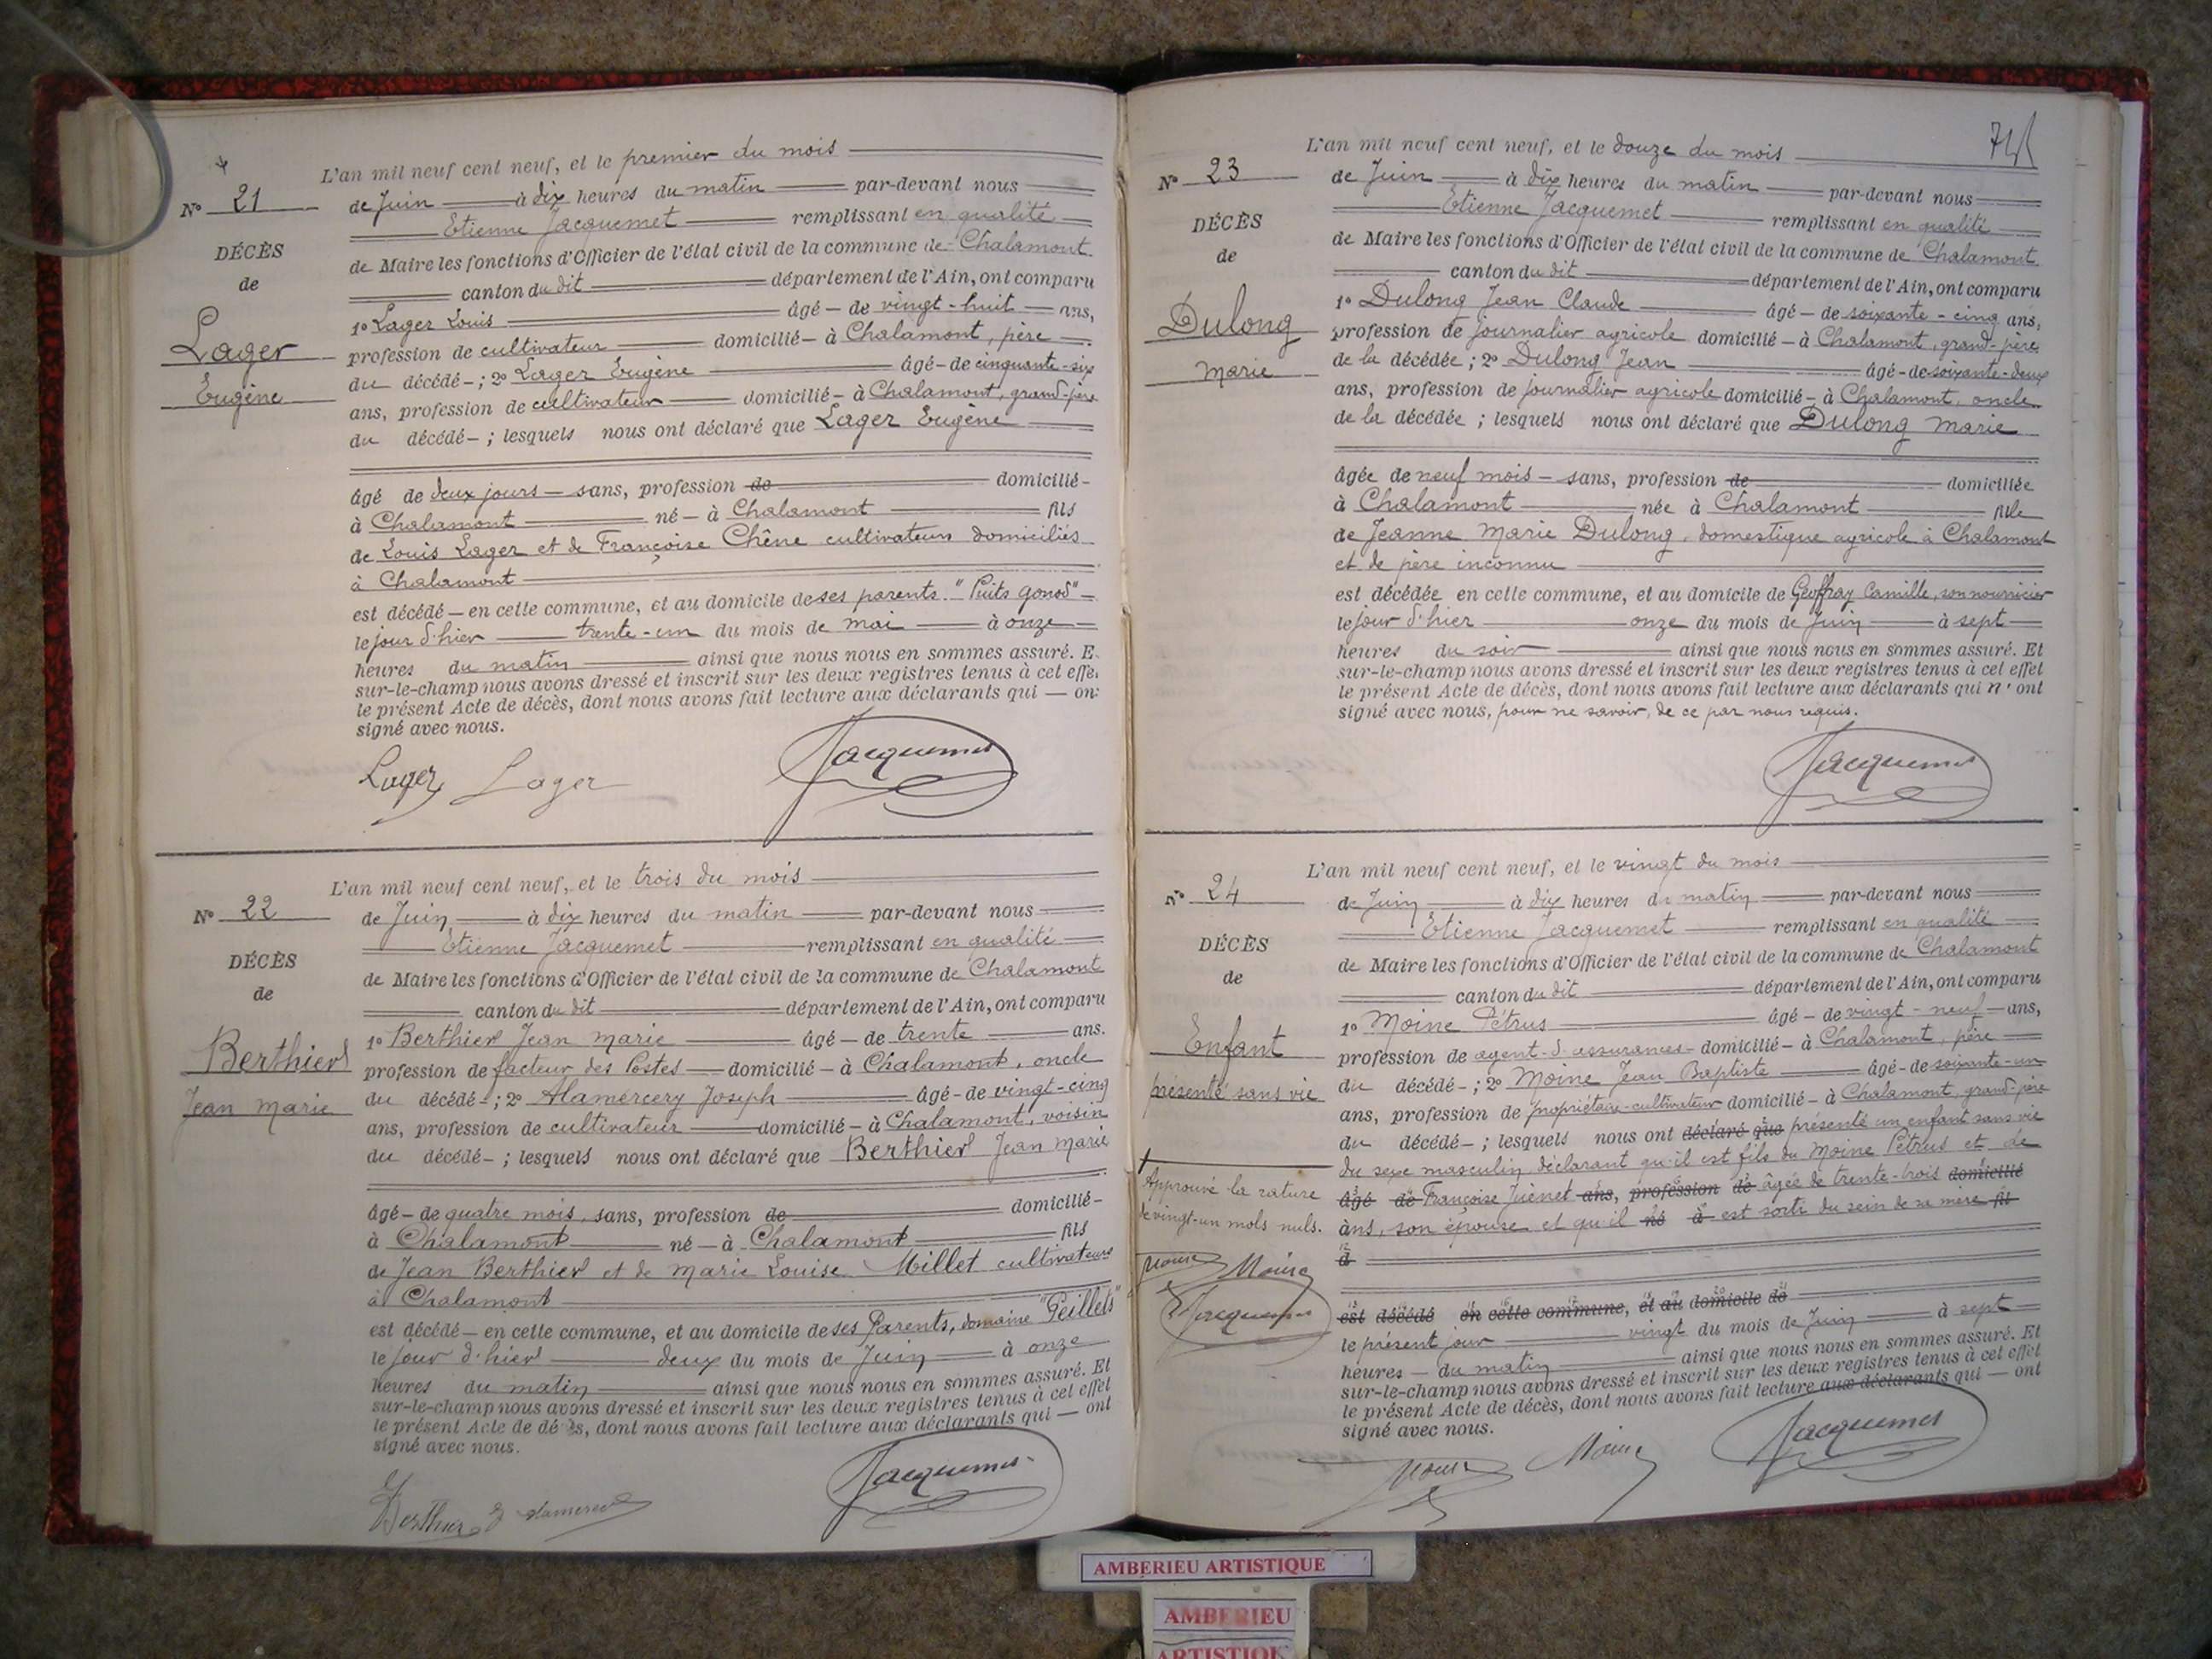 L'an mil neuf cent neuf, et le premier du mois
N° 21
de Juin à dix heures du matin par-devant nous
Etienne Jacquemet remplissant en qualité
DÉCÈS
de Maire les fonctions d'Officier de l'état civil de la commune de Chalamont
de
canton du dit département de l'Ain, ont comparu
Lager
1° Lager Louis âgé de vingt-huit ans,
profession de cultivateur domicilié à Chalamont, père
Eugène
du décédé ; 2° Lager Eugène âgé de cinquante-six
ans, profession de cultivateur domicilié à Chalamont, grand-père
du décédé ; lesquels nous ont déclaré que Lager Eugène
âgé de deux jours sans, profession de domicilié
à Chalamont né à Chalamont fils
de Louis Lager et de Françoise Chêne cultivateurs domiciliés
à Chalamont
est décédé en cette commune, et au domicile de ses parents "Puits gonod"
le jour d'hier trente-un du mois de mai à onze
heures du matin ainsi que nous nous en sommes assuré. E
sur-le-champ nous avons dressé et inscrit sur les deux registres tenus à cet effe
le présent Acte de décès, dont nous avons fait lecture aux déclarants qui on
signé avec nous.
Lager Lager Jacquemet
L'an mil neuf cent neuf, et le trois du mois
N° 22
de Juin à dix heures du matin par-devant nous
Etienne Jacquemet remplissant en qualité
DÉCÈS
de Maire les fonctions d'Officier de l'état civil de la commune de Chalamont
de
canton du dit département de l'Ain, ont comparu
Berthier
1° Berthier Jean Marie âgé de trente ans.
profession de facteur des Postes domicilié à Chalamont, oncle
Jean Marie
du décédé ; 2° Alamercery Joseph âgé de vingt-cinq
ans, profession de cultivateur domicilié à Chalamont, voisin
du décédé ; lesquels nous ont déclaré que Berthier Jean Marie
âgé de quatre mois, sans, profession de domicilié
à Chalamont né à Chalamont fils
de Jean Berthier et de Marie Louise Millet cultivateurs
à Chalamont
est décédé en cette commune, et au domicile de ses Parents, domaine "Peillets"
le jour d'hier deux du mois de Juin à onze
heures du matin ainsi que nous nous en sommes assuré. Et
sur-le-champ nous avons dressé et inscrit sur les deux registres tenus à cet effet
le présent Acte de décès, dont nous avons fait lecture aux déclarants qui ont
signé avec nous.
Berthier J Alamercery Jacquemet
L'an mil neuf cent neuf, et le douze du mois
N° 23
de Juin à dix heures du matin par-devant nous
Etienne Jacquemet remplissant en qualité
DÉCÈS
de Maire les fonctions d'Officier de l'état civil de la commune de Chalamont
de
canton du dit département de l'Ain, ont comparu
Dulong
1° Dulong Jean Claude âgé de soixante-cinq ans,
profession de journalier agricole domicilié à Chalamont, grand-père
Marie
de la décédée ; 2° Dulong Jean âgé de soixante-deux
ans, profession de journalier agricole domicilié à Chalamont, oncle
de la décédée ; lesquels nous ont déclaré que Dulong Marie
âgée de neuf mois sans, profession de domiciliée
à Chalamont née à Chalamont fille
de Jeanne Marie Dulong, domestique agricole à Chalamont
et de père inconnu
est décédée en cette commune, et au domicile de Geoffray Camille, son nourricier
le jour d'hier onze du mois de Juin à sept
heures du soir ainsi que nous nous en sommes assuré. Et
sur-le-champ nous avons dressé et inscrit sur les deux registres tenus à cet effet
le présent Acte de décès, dont nous avons fait lecture aux déclarants qui n'ont
signé avec nous, pour ne savoir, de ce par nous requis.
Jacquemet
L'an mil neuf cent neuf, et le vingt du mois
N° 24
de Juin à dix heures du matin par-devant nous
Etienne Jacquemet remplissant en qualité
DÉCÈS
de Maire les fonctions d'Officier de l'état civil de la commune de Chalamont
de
canton du dit département de l'Ain, ont comparu
Enfant
1° Moine Pétrus âgé de vingt-neuf ans,
profession de agent d'assurances domicilié à Chalamont, père
présenté sans vie
du décédé ; 2° Moine Jean Baptiste âgé de soixante-un
ans, profession de propriétaire-cultivateur domicilié à Chalamont, grand-père
du décédé ; lesquels nous ont déclaré que présenté un enfant sans vie
du sexe masculin déclarant qu'il est fils du Moine Pétrus et de
Approuvé la rature
âgé de Françoise ans, profession de âgée de trente-trois domicilié
de vingt-un mots nuls.
ans, son épouse et qu'il né à est sorti du sein de sa mère fil
Moine Moine
d
Jacquemet
est décédé en cette commune, et au domicile de
le présent jour vingt du mois de Juin à sept
heures du matin ainsi que nous nous en sommes assuré. Et
sur-le-champ nous avons dressé et inscrit sur les deux registres tenus à cet effet
le présent Acte de décès, dont nous avons fait lecture aux déclarants qui ont
signé avec nous.
Moine Moine Jacquemet
AMBERIEU ARTISTIQUE
AMBERIEU
ARTISTIQUE